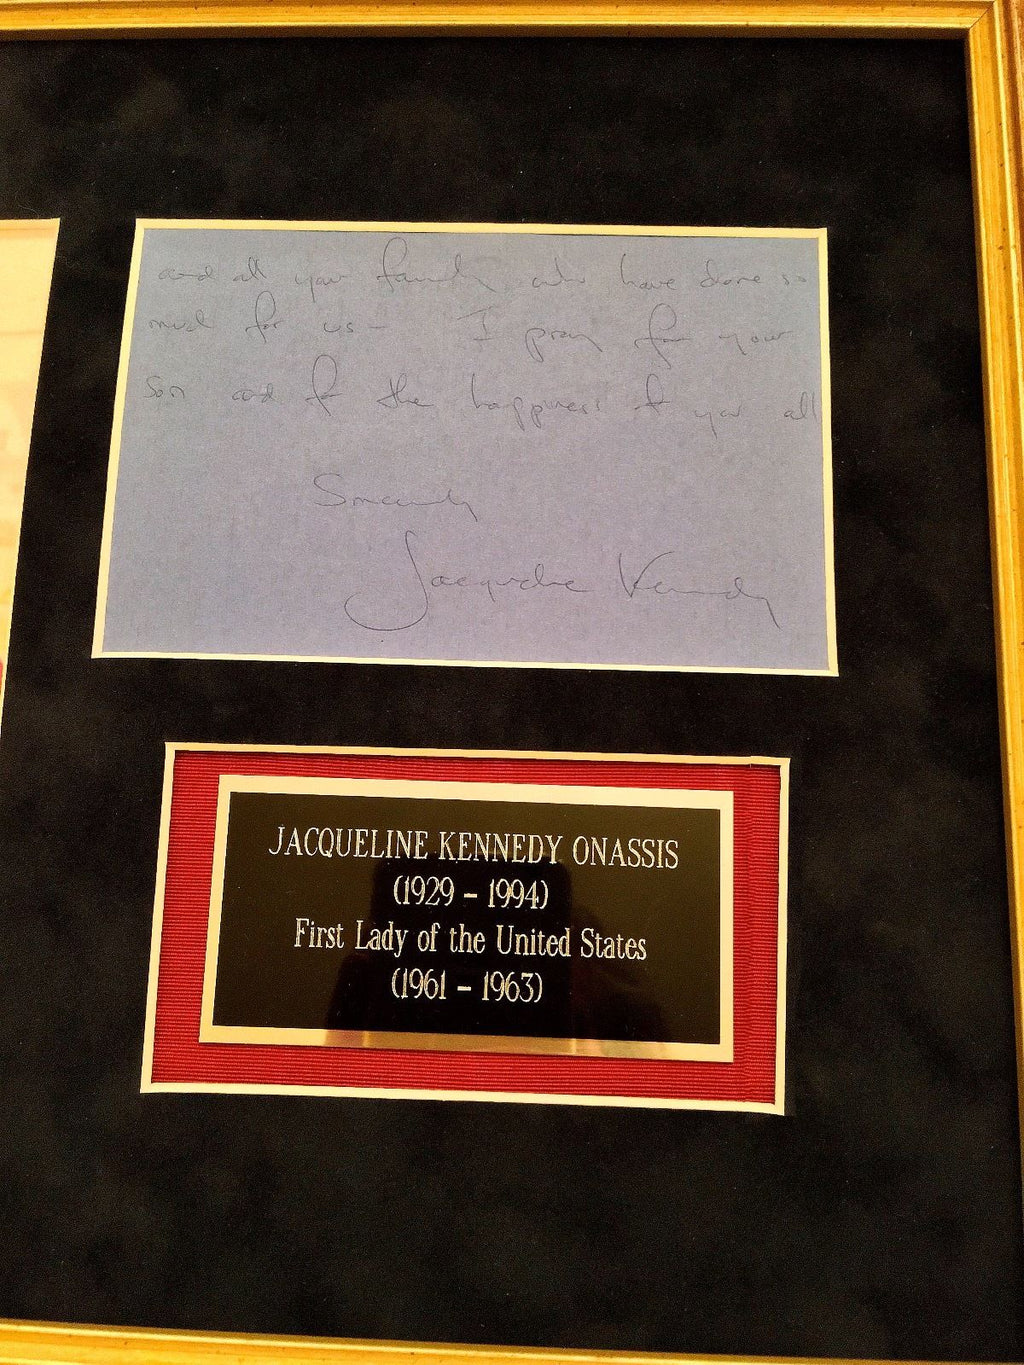 and all your family who have done so
much for us – I pray for your
son and for the happiness of you all
Sincerely
Jacqueline Kennedy
JACQUELINE KENNEDY ONASSIS
(1929 – 1994)
First Lady of the United States
(1961 – 1963)